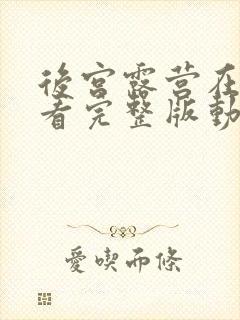 後宮露营在
看完整版動
愛喫而條